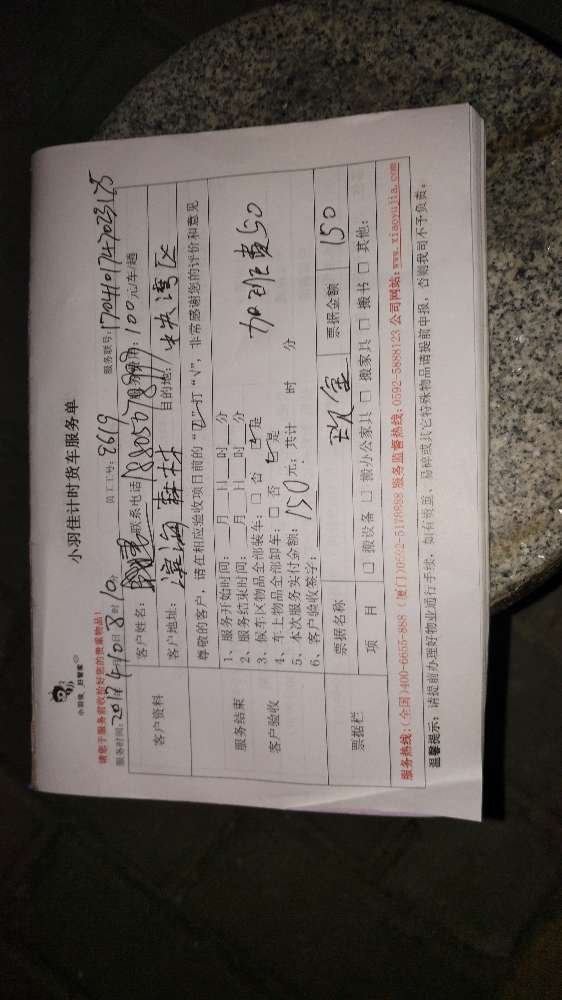 小羽佳计时货车服务单
小羽佳 好管家
请您于服务前收检好您的贵重物品!
员工工号: 8619 服务联号: 170410174703125
服务时间: 2017年4月10日8时10
客户资料
客户姓名: 联系电话: 服务费用: 100元/车·趟
客户地址: 滨海森林 目的地: 中央湾区
服务结束
客户验收
尊敬的客户, 请在相应验收项目前的“□”打“√”, 非常感谢您的评价和意见
1、服务开始时间: 月 日 时 分
2、服务结束时间: 月 日 时 分
3、候车区物品全部装车: □ 否 ☑ 是
4、车上物品全部卸车: □ 否 ☑ 是
5、本次服务实付金额: 150元; 共计 时 分
6、客户验收签字:
加班费50
票据栏
票据名称 现金 票据金额 150
项 目 □ 搬设备 □ 搬办公家具 □ 搬家具 □ 搬书 □ 其他:
服务热线: (全国)400-6655-888 (厦门)0592-5178888 服务监督热线: 0592-5888123 公司网站: www.xiaoyujia.com
温馨提示: 请提前办理好物业通行手续, 如有贵重、易碎或其它特殊物品请提前申报, 否则我司不予负责。